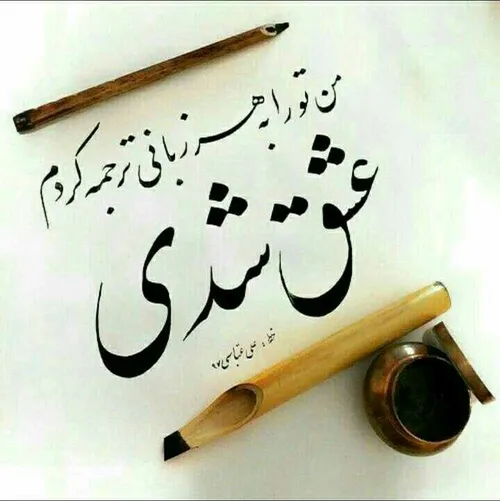 من تو را به هر زبانی ترجمه کردم
عشق شدی
بخط: علی عباسی ۹۷